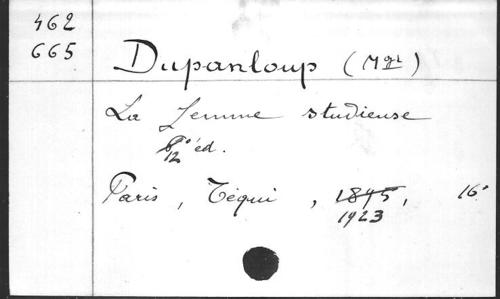 462
665
Dupanloup (Mgr)
La Femme studieuse
12° éd.
Paris, Téqui, 1895, 16°
1923